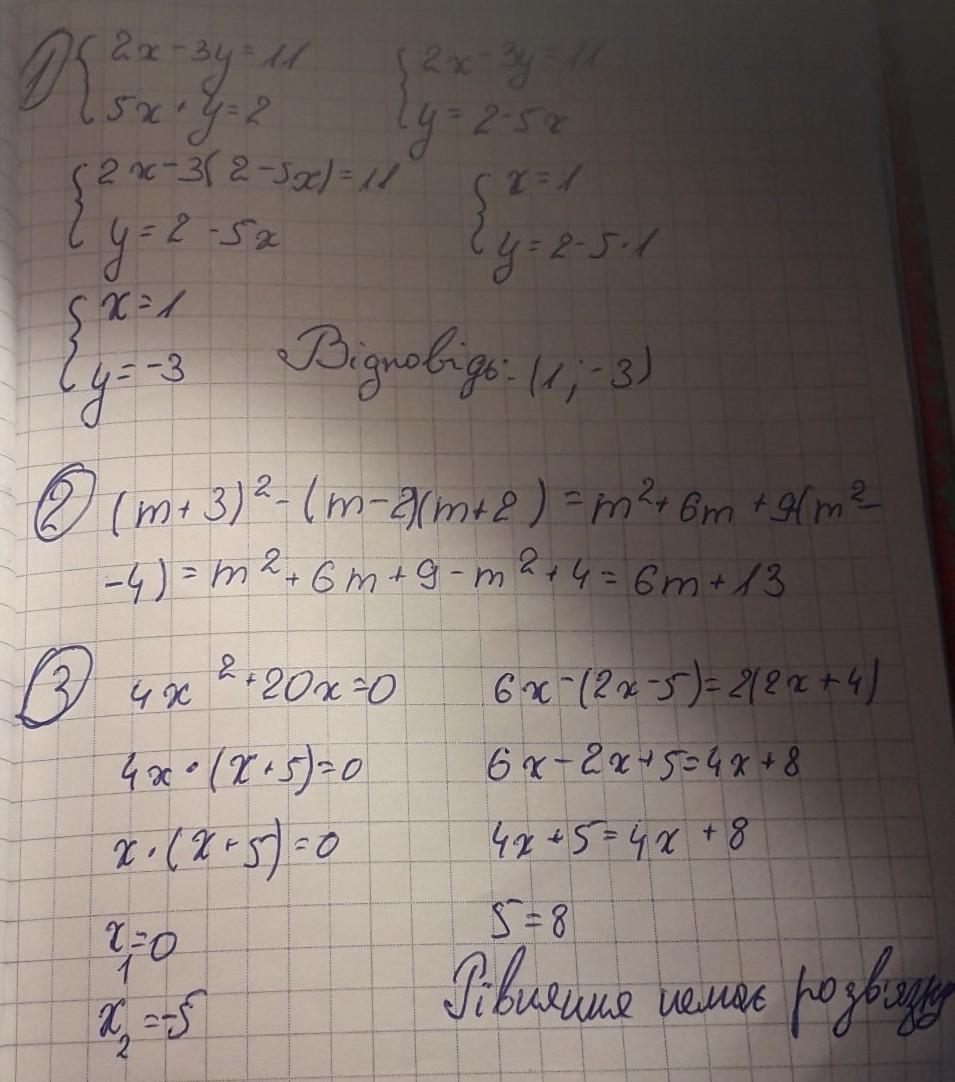 1) { 2x - 3y = 11   { 2x - 3y = 11
5x + y = 2   y = 2 - 5x
{ 2x - 3(2 - 5x) = 11   { x = 1
y = 2 - 5x   y = 2 - 5·1
{ x = 1
y = -3   Відповідь: (1; -3)
2) (m + 3)² - (m - 2)(m + 2) = m² + 6m + 9(m² -
-4) = m² + 6m + 9 - m² + 4 = 6m + 13
3) 4x² + 20x = 0   6x - (2x - 5) = 2(2x + 4)
4x · (x + 5) = 0   6x - 2x + 5 = 4x + 8
x · (x + 5) = 0   4x + 5 = 4x + 8
x₁ = 0   5 = 8
x₂ = -5   Рівняння немає розв'язку